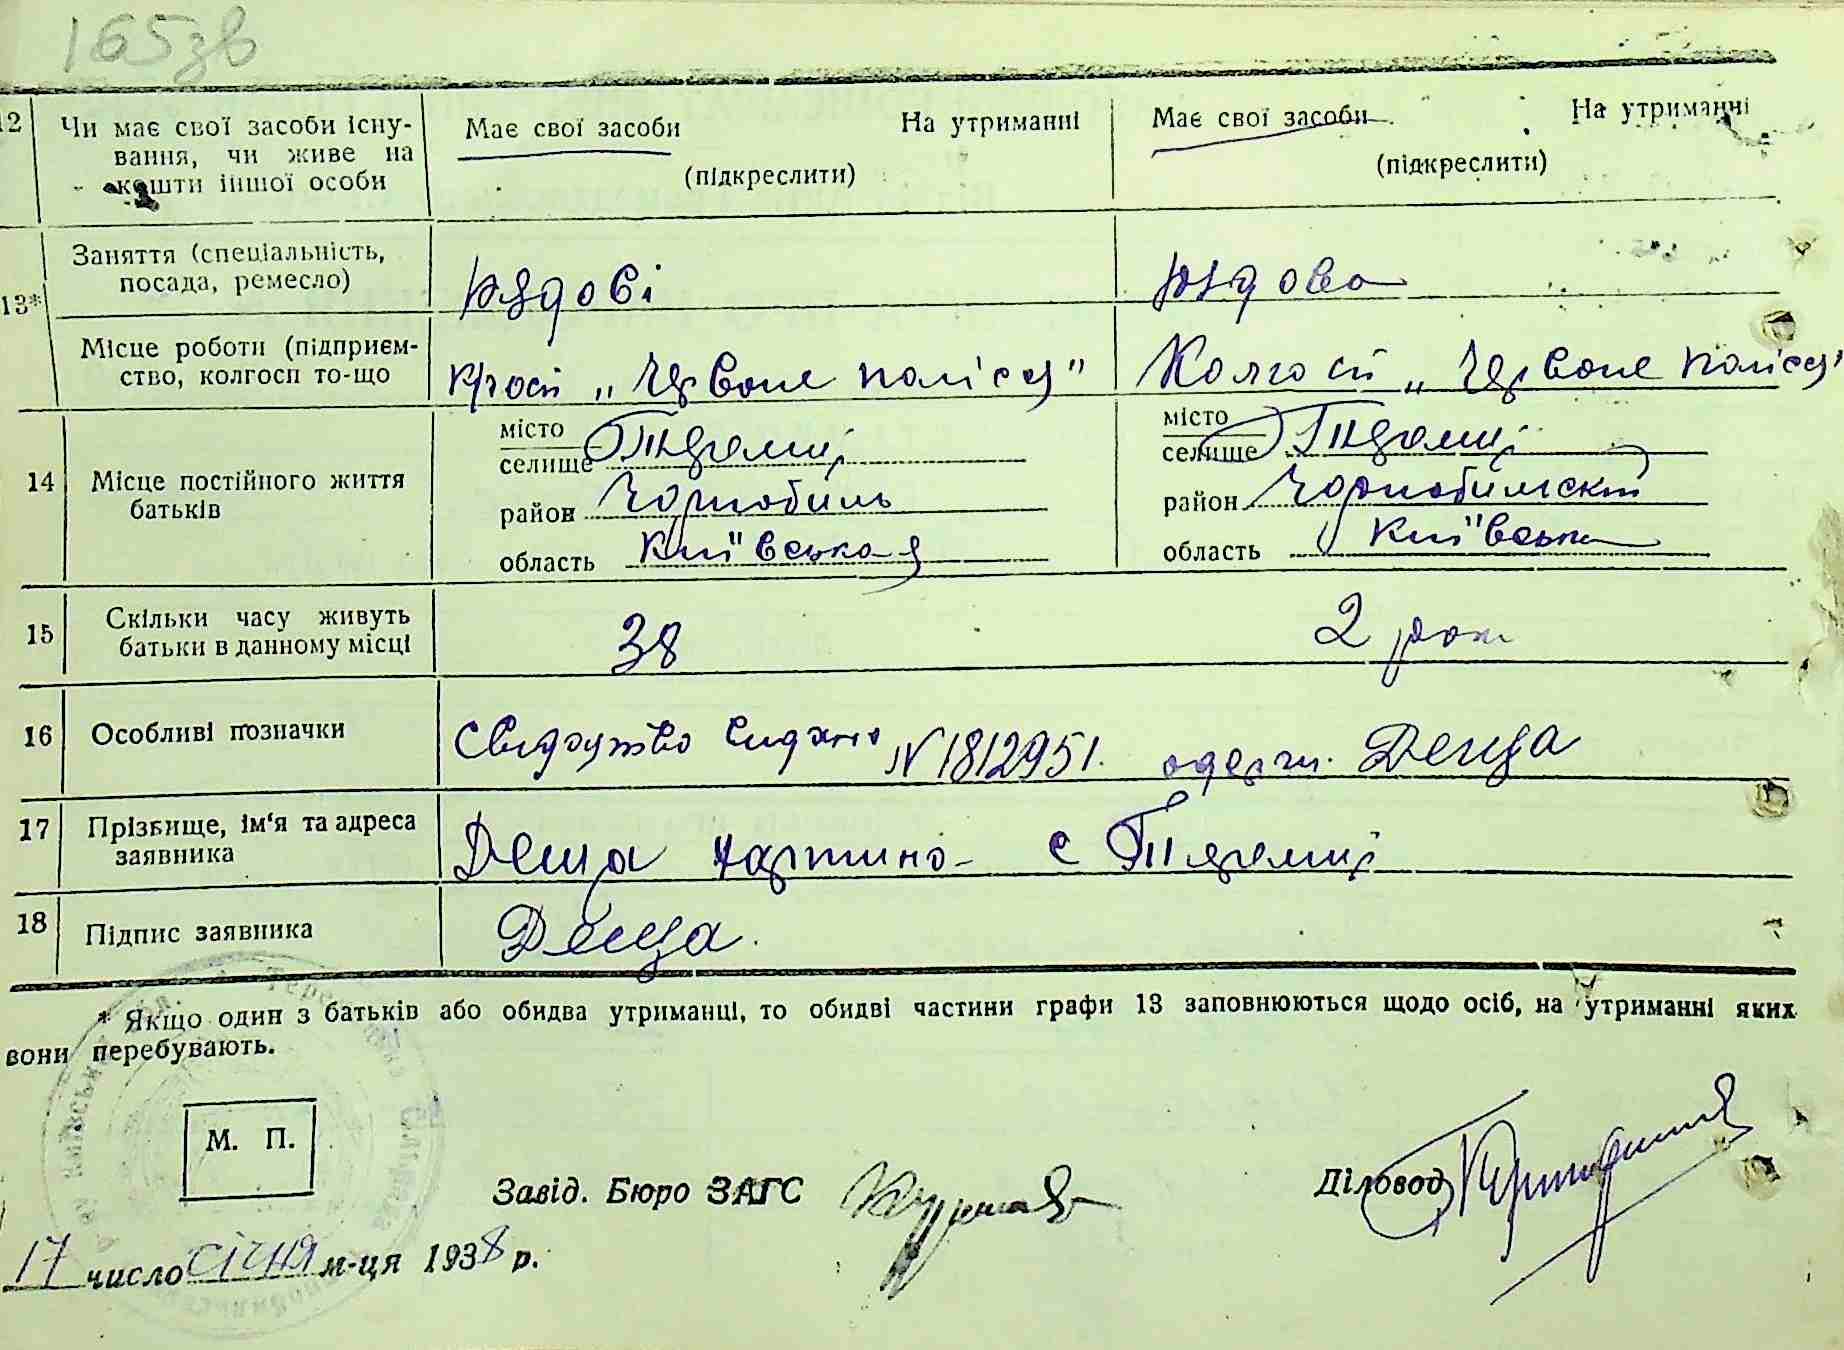 165зв
12 Чи має свої засоби існу- Має свої засоби На утриманні Має свої засоби На утриманні
вання, чи живе на (підкреслити) (підкреслити)
кошти іншої особи
13* Заняття (спеціальність, рядові рядова
посада, ремесло)
Місце роботи (підприєм- „Червоне полісся" Колгосп „Червоне полісся"
ство, колгосп то-що
14 Місце постійного життя батьків
місто
селище Теремці
район Чорнобиль
область Київська
місто
селище Теремці
район Чорнобильский
область Київська
15 Скільки часу живуть 38 2 рок
батьки в данному місці
16 Особливі позначки Свидоцтво видано N 1812951. одерж. Деща
17 Прізвище, ім'я та адреса Деща Мартина с Теремці
заявника
18 Підпис заявника Деща.
* Якщо один з батьків або обидва утриманці, то обидві частини графи 13 заповнюються щодо осіб, на утриманні яких
вони перебувають.
М. П.
Завід. Бюро ЗАГС Діловод
17 число січня м-ця 1938 р.